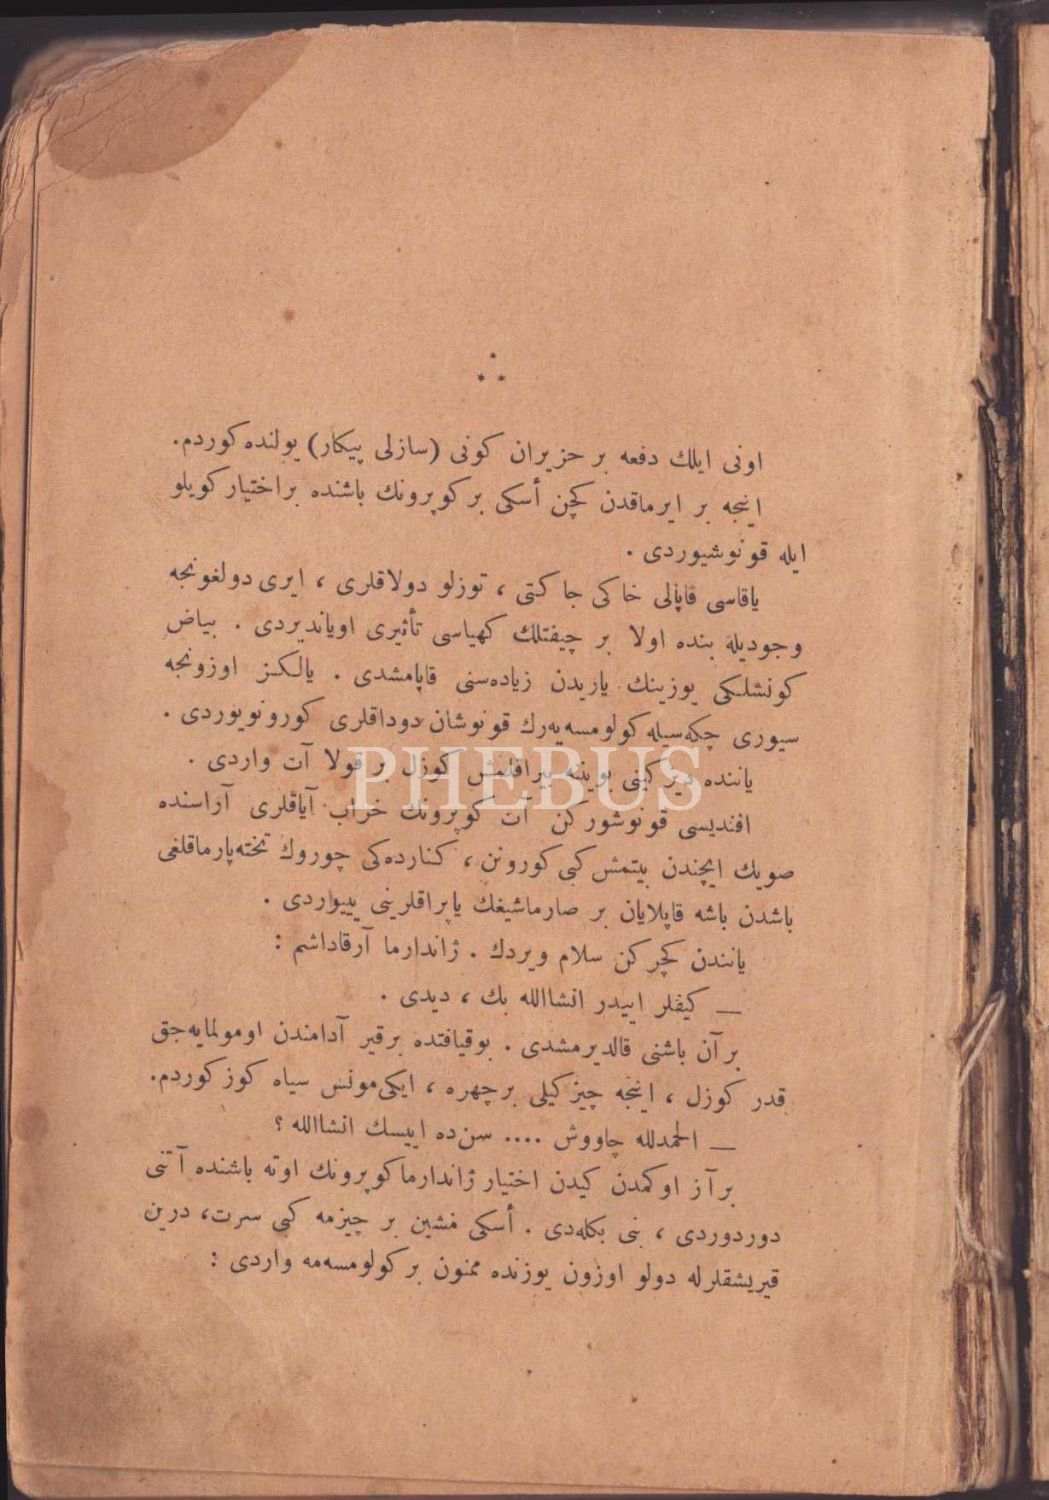 اونی ایلك دفعه بر حزیران كونی (سازلی پیكار) یولنده كوردم.
اینجه بر ایرماقدن كچن أسكی بر كوپرونك باشنده براختیار كویلو
ایله قونوشیوردی .
یاقاسی قاپالی خاكی جاكتی ، توزلو دولاقلری ، ایری دولغونجه
وجودیله بنده اولا بر چیفتلك كهیاسی تأثیری اویاندیردی . بیاض
كونشلكی یوزینك یاریدن زیاده‌سنی قاپامشدی . یالكز اوزونجه
سیوری چكه‌سیله كولومسه‌یه‌رك قونوشان دوداقلری كورونویوردی .
یاننده دیزكینی بوینه بیراقلمش كوزل بر قولا آت واردی .
PHEBUS
افندیسی قونوشوركن آت كوپرونك خراب آیاقلری آراسنده
صویك ایچندن بیتمش كبی كورونن ، كنارده‌كی چوروك تخته‌پارماقلغی
باشدن باشه قاپلایان بر صارماشیغك یاپراقلرینی ییپواردی .
یانندن كچركن سلام ویردك . ژاندارما آرقاداشم :
— كیفلر اییدر انشاالله بك ، دیدی .
بر آن باشنی قالدیرمشدی . بوقیافتده برقیر آدامندن اومولمایه‌جق
قدر كوزل ، اینجه چیزكیلی برچهره ، ایكی‌مونس سیاه كوز كوردم.
— الحمدلله چاووش .... سن‌ده اییسك انشاالله ؟
بر آز اوكمدن كیدن اختیار ژاندارما كوپرونك اوته باشنده آتنی
دوردوردی ، بنی بكله‌دی . أسكی مشین بر چیزمه كبی سرت، درین
قیریشقلرله دولو اوزون یوزنده ممنون بر كولومسه‌مه واردی :